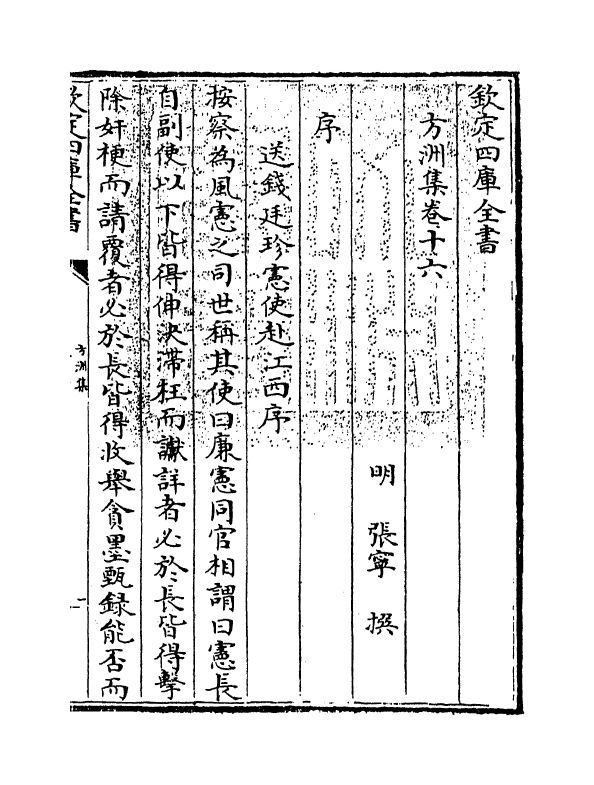 欽定四庫全書
方洲集卷十六
明 張寧 撰
序
送錢廷珍憲使赴江西序
按察為風憲之司世稱其使曰廉憲同官相謂曰憲長
自副使以下皆得伸決滯枉而讞詳者必於長皆得擊
除奸梗而請覆者必於長皆得收舉貪墨甄録能否而
欽定四庫全書
方洲集
一